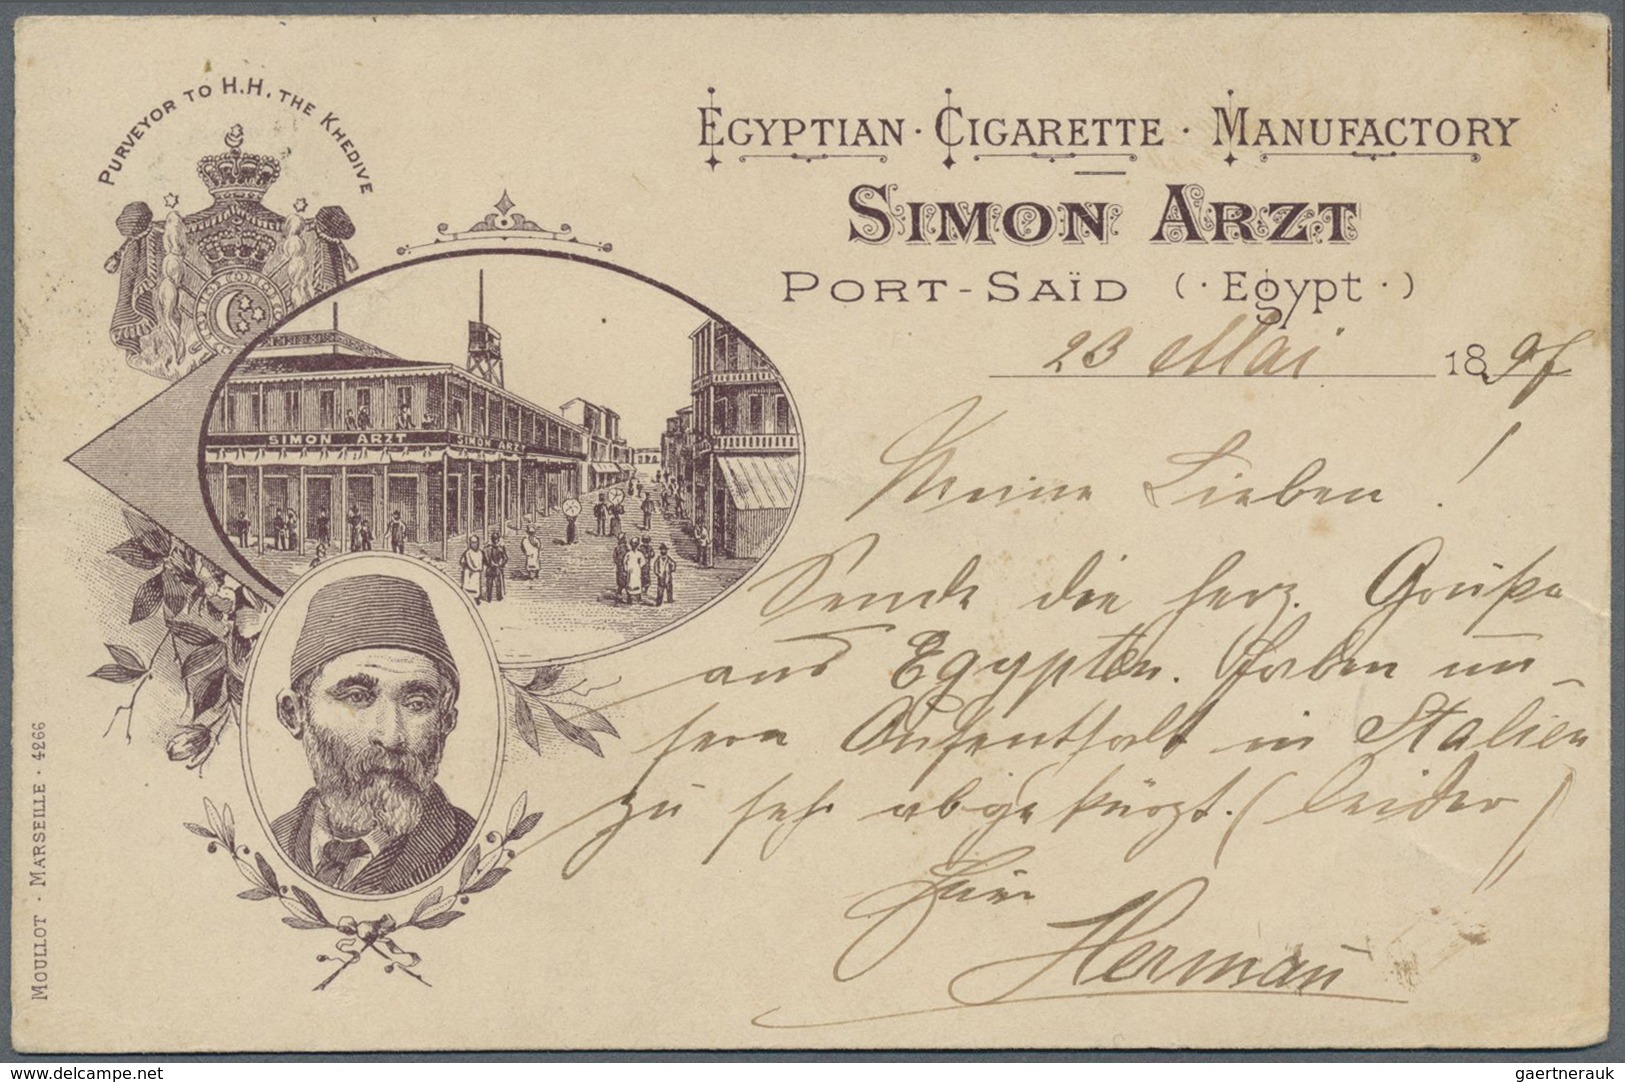 PURVEYOR TO H.H. THE KHEDIVE
EGYPTIAN · CIGARETTE · MANUFACTORY
SIMON ARZT
PORT-SAÏD (· Egypt ·)
23 Mai 1897
SIMON ARZT
SIMON ARZT
Meine Lieben!
Sende die herz. Grüße
aus Egypten. Haben un-
sern Aufenthalt in Italien
zu sehr abgekürzt. (leider)
Herman̄
MOULLOT · MARSEILLE · 4266
www.delcampe.net
gaertnerauk